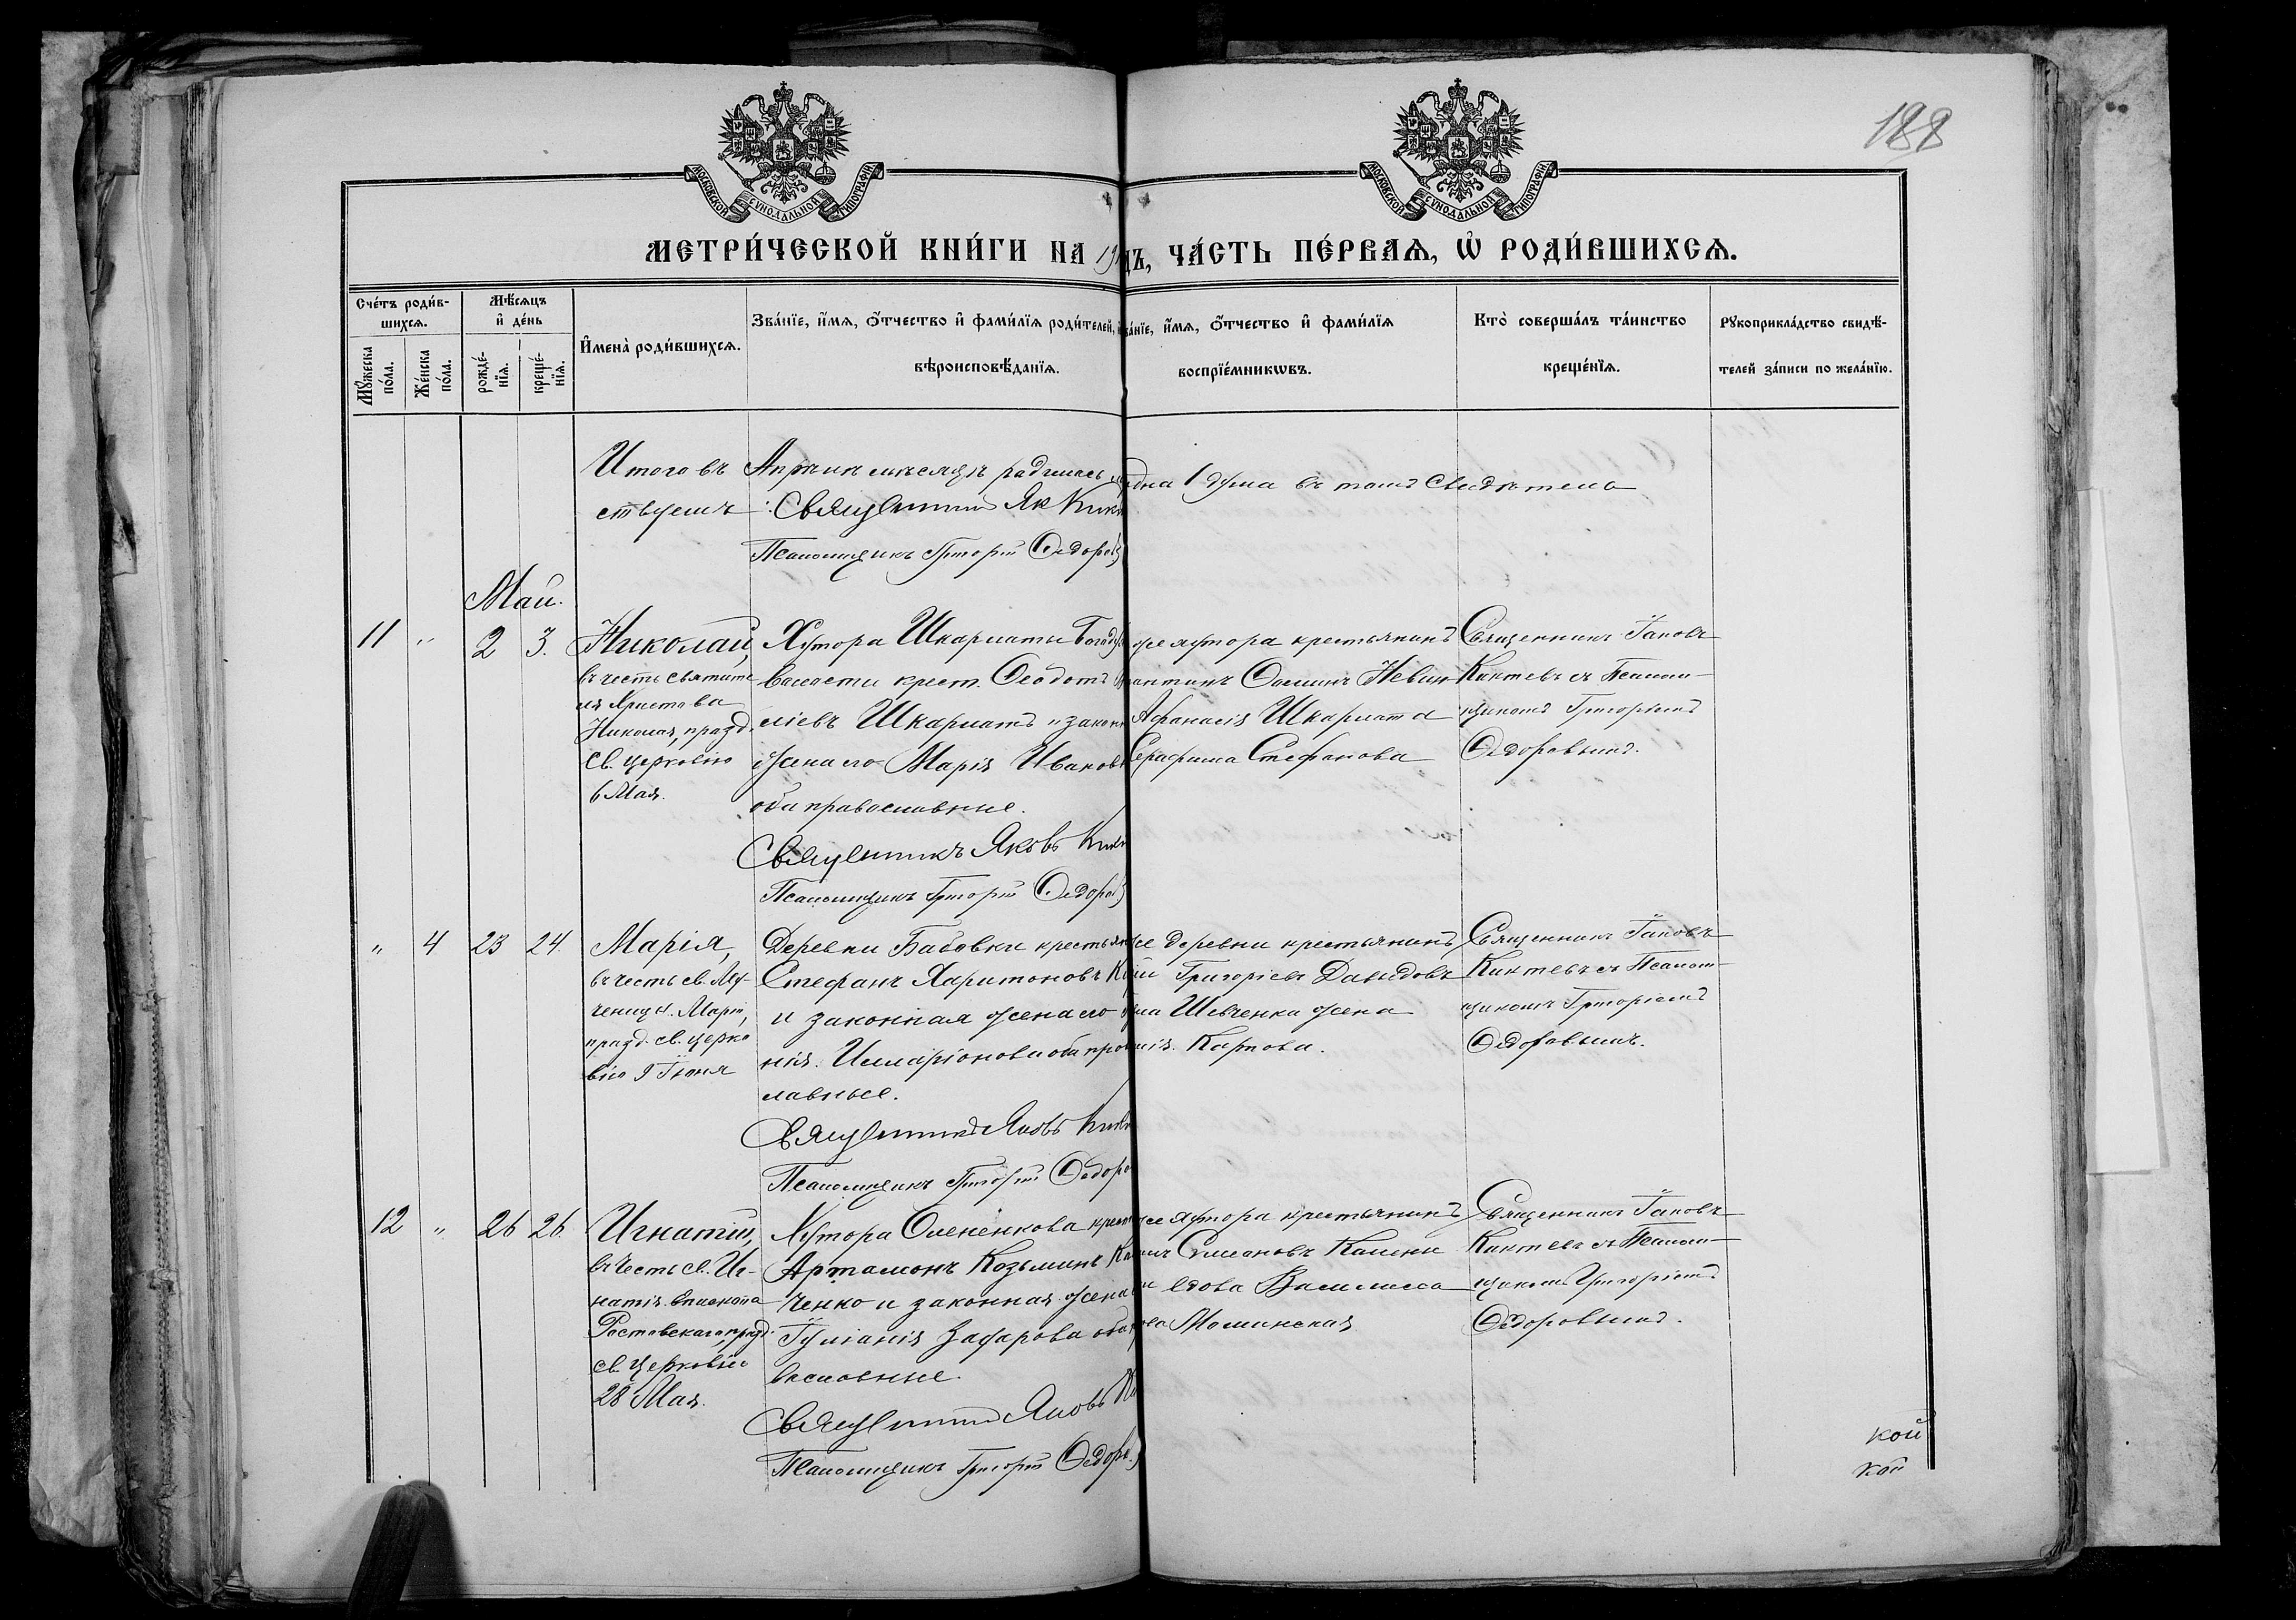 188
МОСКОВСКОЙ СѴНОДАЛЬНОЙ ТИПОГРАФІИ
МОСКОВСКОЙ СѴНОДАЛЬНОЙ ТИПОГРАФІИ
МЕТРИ́ЧЕСКОЙ КНИ́ГИ НА 19
дъ, ЧА́СТЬ ПЕ́РВАѦ, Ѡ҆ РОДИ́ВШИХСѦ.
Сче́тъ роди́в-
шихсѧ.
Мꙋ́жеска
по́ла.
Же́нска
по́ла.
Мѣ́сѧцъ
и҆ де́нь
рожде́-
нїѧ.
креще́-
нїѧ.
И҆мена̀ роди́вшихсѧ.
Зва́нїе, и҆́мѧ, ѻ҆́тчество и҆ фами́лїѧ роди́телей,
вѣроисповѣ́данїѧ.
ва́нїе, и҆́мѧ, ѻ҆́тчество и҆ фами́лїѧ
воспрїе́мникѡвъ.
Кто̀ соверша́лъ та́инство
креще́нїѧ.
Рꙋкоприкла́дство свидѣ́-
телей за́писи по жела́нїю.
Итого въ Апрѣлѣ мѣсяцѣ родилась
ствуемъ: Священникъ Як
Псаломщикъ Григорій Ѳедоров
дна 1 душа въ томъ свидѣтель
Май.
11 " 2 3.
Николай,
въ честь святите
ля Христова
Николая, празд.
св. церковію
6 Мая.
Хутора Шкарматы Богод
волости крест. Ѳеодотъ
сіевъ Шкарматъ и закон
жена его Марія Иванов
оба православные.
Священникъ Яковъ
Псаломщикъ Григорій Ѳедоров
же хутора крестьянинъ
Ѳоминъ
Аѳанасія Шкармата
Серафима Стефанова
Священникъ Іаковъ
съ Псалом-
щикомъ Григоріемъ
Ѳедоровымъ.
" 4 23 24.
Марія,
въ честь св. Му-
ченицы Маріи,
празд. св. церко
вію 9 Іюня
Деревни Бабовки крестьян
Стефанъ Харитоновъ
и законная жена его
нія Илларіонова оба прав
лавные.
Священникъ Яковъ
Псаломщикъ Григорій Ѳедоро
же деревни крестьянинъ
Григоріевъ Давыдовъ
Шевченка жена
Карпова.
Священникъ Іаковъ
съ Псалом-
щикомъ Григоріемъ
Ѳедоровымъ.
12 " 26 26.
Игнатій,
въ честь св. Иг-
натія епископа
Ростовскаго, празд.
св. церковію
28 Мая.
Хутора Оленёнкова крест
Артамонъ Козьминъ
ченко и законная жена
Іуліанія Захарова оба
вославные.
Священникъ Яковъ
Псаломщикъ Григорій Ѳедоро
же хутора крестьянинъ
Симеоновъ
вдова Василисса
Священникъ Іаковъ
съ Псалом-
щикомъ Григоріемъ
Ѳедоровымъ.
кой
кой